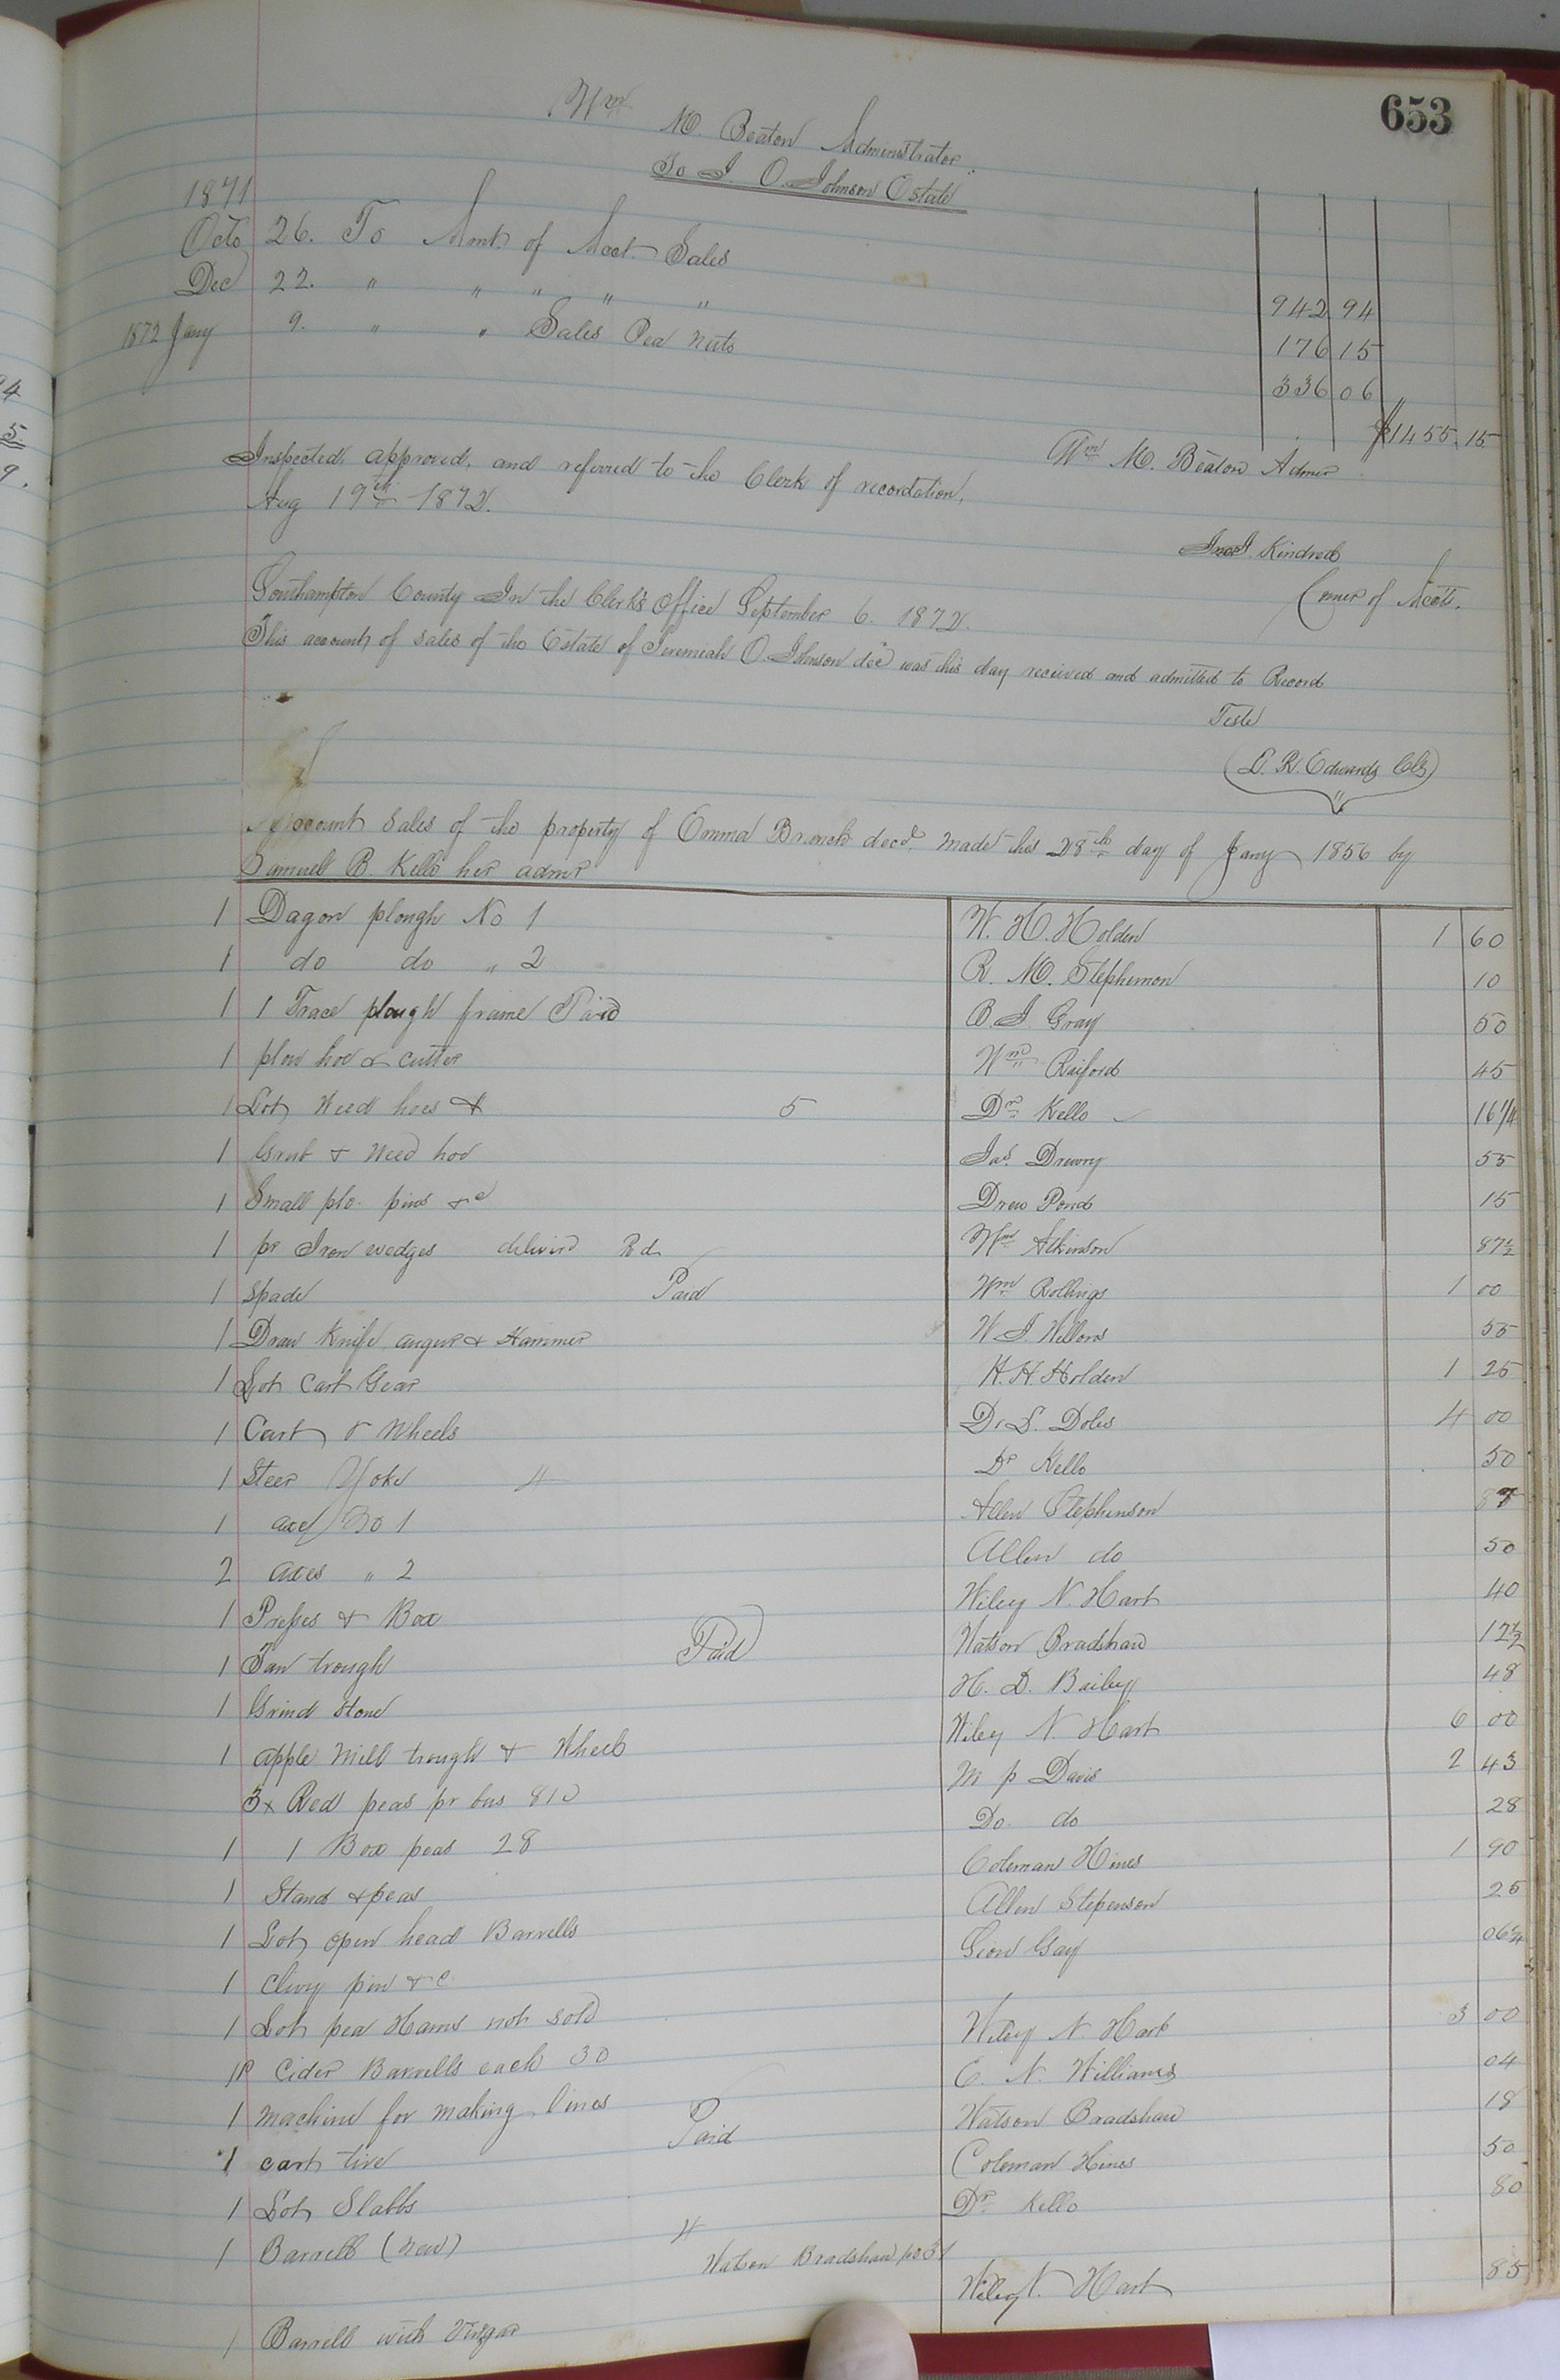 653
Wm M. Beaton Adminstrator
To J. O. Johnson Estate
1871
Octo 26. To Amt. of Acct. Sales 942 94
Dec 22. " " " " " 176 15
1872 Jany 9. " " Sales Pea nuts 336 06
$1455.15
Wm M. Beaton Admr
Inspected, approved, and referred to the Clerk of recordation,
Aug 19th 1872.
Kindred
Comr of Accts.
Southampton County In the Clerk's Office September 6. 1872.
This account of sales of the Estate of Jeremiah O. Johnson decd was this day received and admitted to Record
Teste
L. R. Edwards Clk
Account Sales of the property of Emma Branch decd. made this 28th day of Jany 1856 by
Samuell B. Kello her admr
1 Dagon plough No 1 W. H. Holden 1 60
1 do do " 2 R. M. Stephenson 10
1 1 Trace plough frame Paid B. J. Gray 50
1 plow hoe & cutter Wm Raiford 45
1 Lot Weed hoes & 5 Dr Kello 16 1/4
1 Grub & Weed hoe Jas. Drewry 55
1 Small plo. pins &c Drew Pond 15
1 pr Iron wedges deliverd Rd Wm Atkinson 87 1/2
1 Spade Paid Wm Rollings 1 00
1 Draw Knife, augur & Hammer W. J. Wellons 55
1 Lot Cart Gear H. H. Holden 1 25
1 Cart & Wheels D. S. Doles 4 00
1 Steer Yoke 4 Dr Kello 50
1 axe No 1 Allen Stephenson
2 axes " 2 Allen do 50
1 Presses & Box Wiley N. Hart 40
1 Tan trough Paid Watson Bradshaw 12 1/2
1 Grind Stone H. D. Bailey 48
1 apple Mill trough & Wheels Wiley N. Hart 6 00
3x Red peas pr bus 81 M p Davis 2 43
1 1 Box peas 28 Do. do 28
1 Stand & peas Coleman Hines 1 90
1 Lot open head Barrells Allen Stepenson 25
1 Clivy pin &c. Gay 06 1/4
1 Lot pea Hams not sold
Cider Barrells each 30 Wiley N. Hart 3 00
1 machine for making lines C. N. Williams 04
1 cart tire Paid Watson Bradshaw 18
1 Lot Slabbs Coleman Hines 50
1 Barrell (new) 4 Dr Kello 80
Watson Bradshaw
1 Barrell with Vingar Wiley N. Hart 85